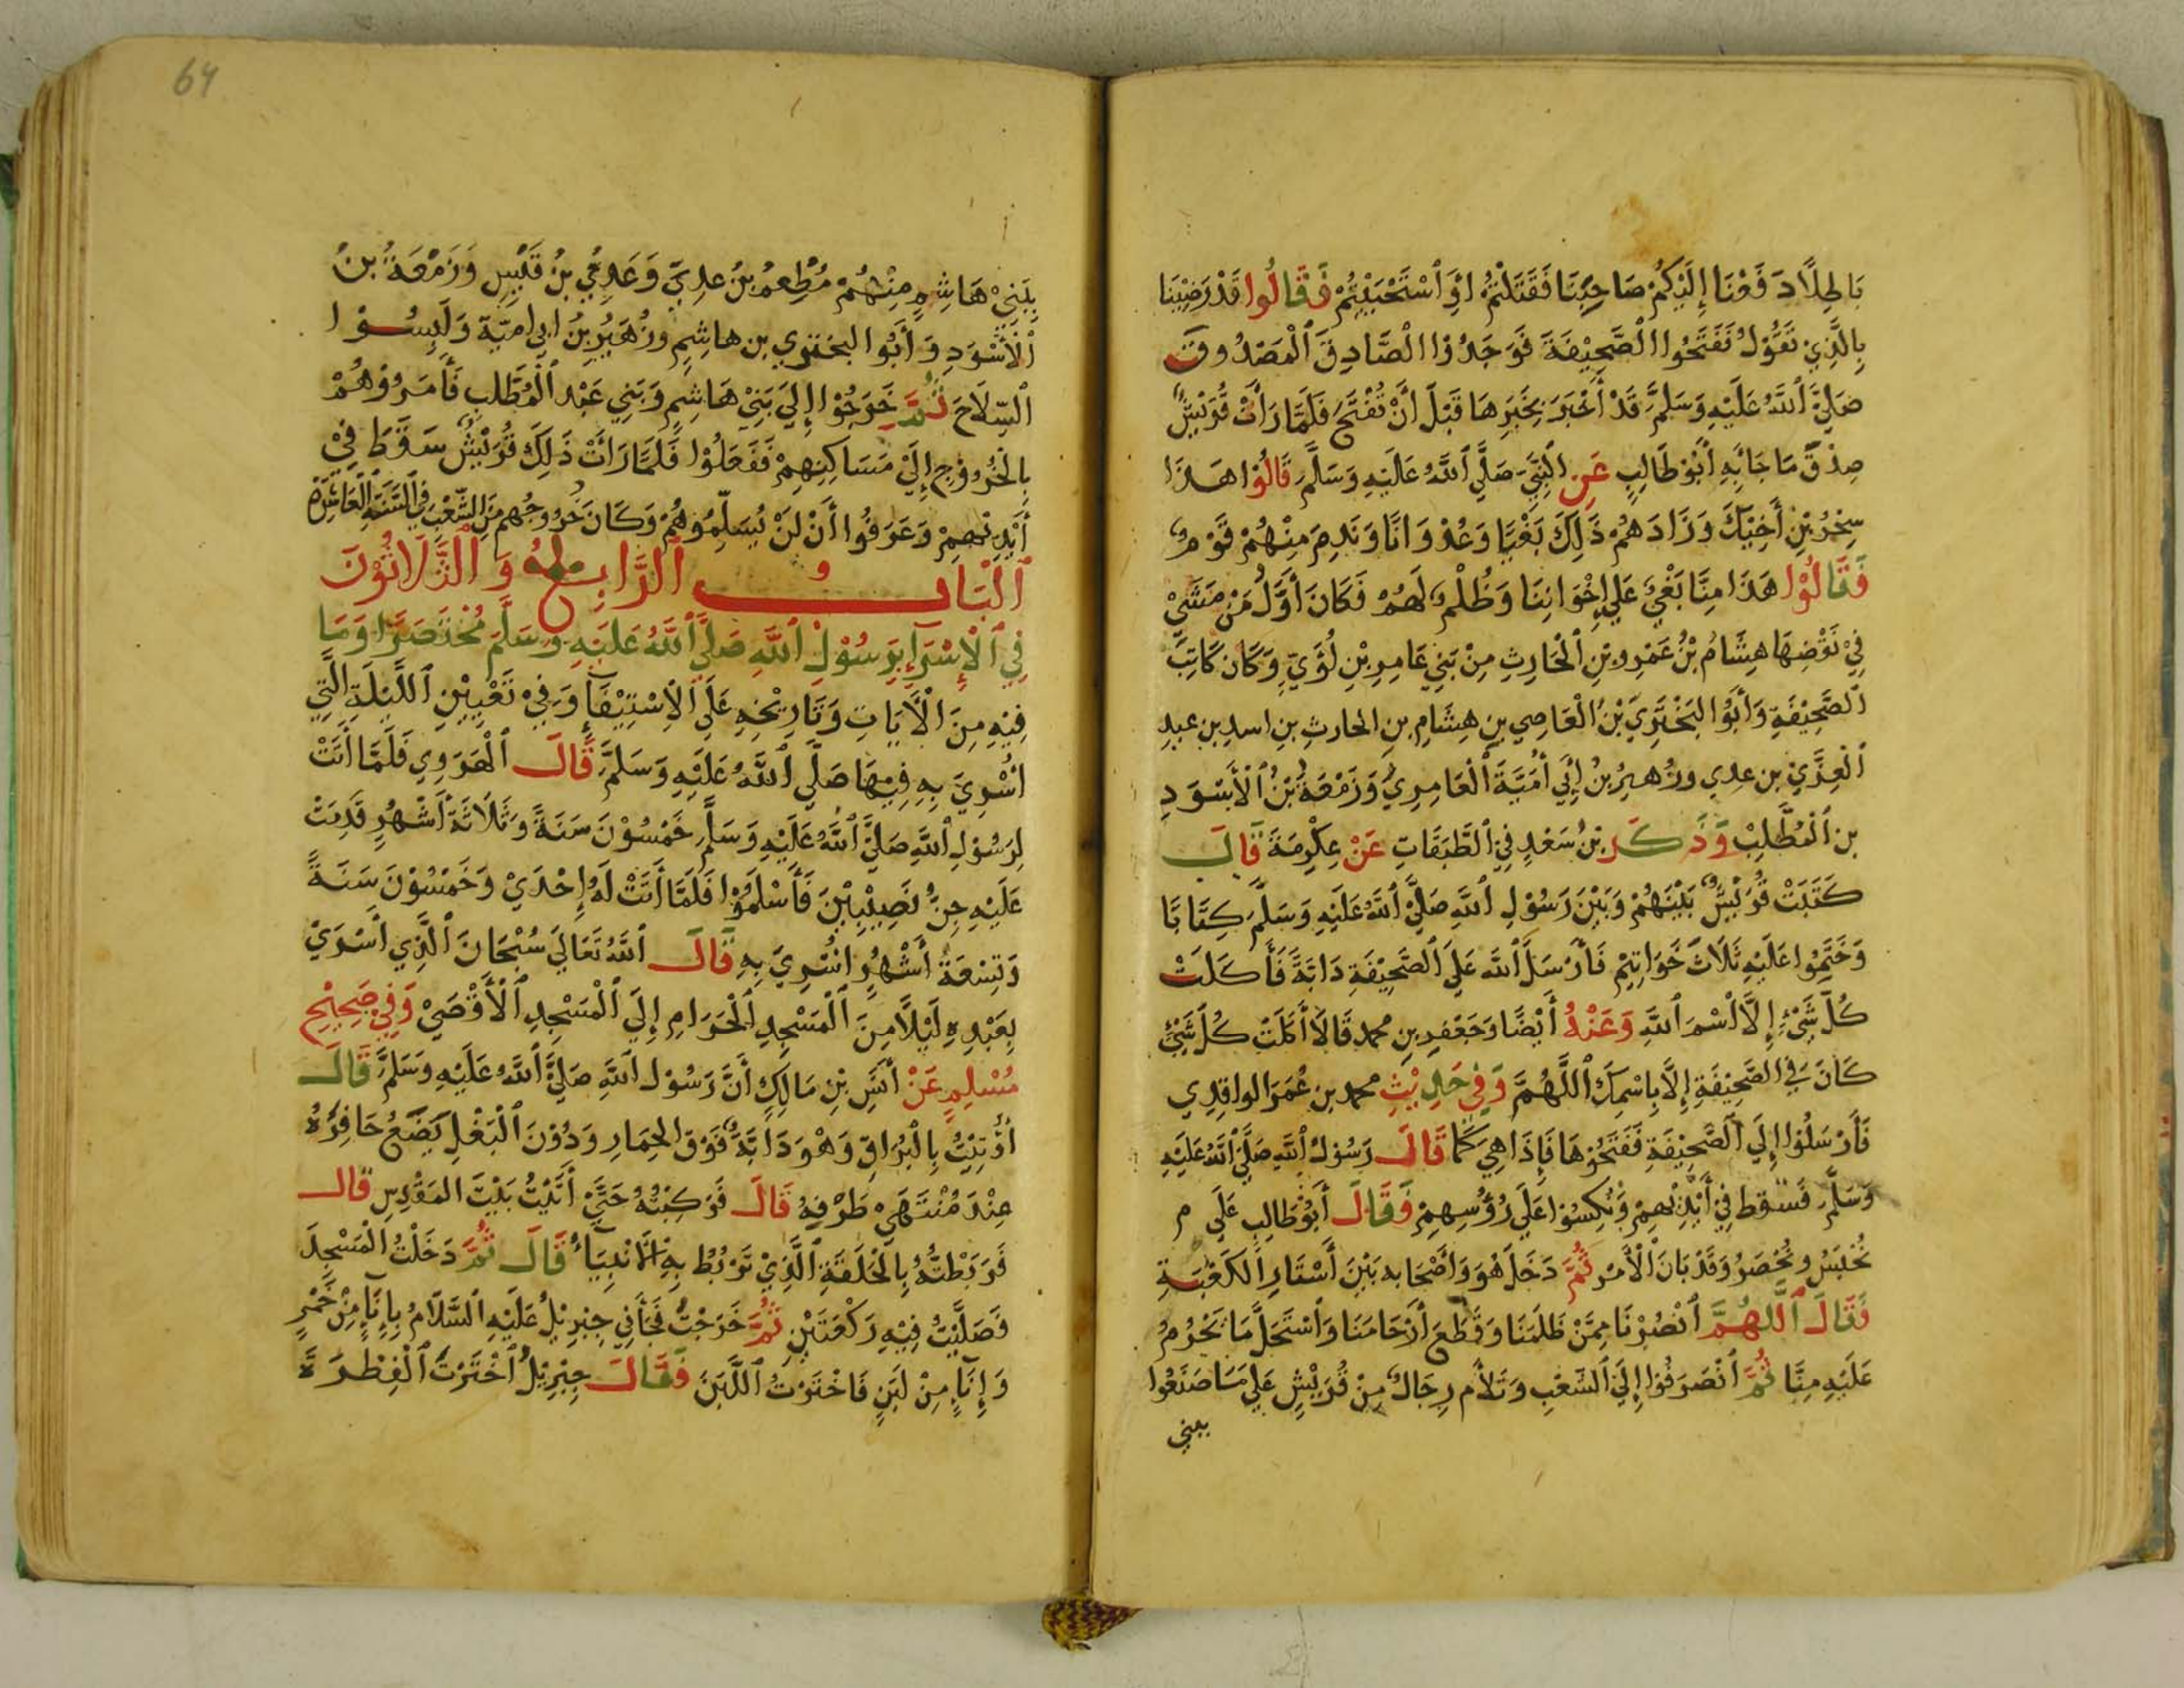 بَاطِلًا دَفَعْنَا إِلَيْكُمْ صَاحِبَنَا فَقَتَلْتُمْ اوْ اَسْتَحْيَيْتُمْ فَقَالُوا قَدْ رَضِيْنَا
بِالَّذِي تَقُوْلُ فَفَتَحُوا الْصَّحِيْفَةَ فَوَجَدُوْا الْصَّادِقَ اَلْمَصْدُوقَ
صَلَّيَ اَللَّهُ عَلَيْهِ وَسَلَّمَ قَدْ أَخْبَرَ بِخَبَرِهَا قَبْلَ أَنْ تُفْتَحَ فَلَمَّا رَأَتْ قُرَيْشٌ
صِدْقَ مَا جَابِهِ أَبُوْ طَالِبٍ عَنِ اَلْنَبِيِّ صَلَّيِ اَللَّهُ عَلَيْهِ وَسَلَّمَ قَالُوْا هَذَا
سِحْرُ بْنِ أَخِيْكَ وَزَادَهُمْ ذَلِكَ بَغْيًا وَعُدْوَانًا وَنَدِمَ مِنْهُمْ قَوْمٌ
فَقَالُوْا هَذَا مِنَّا بَغْيٌ عَلَي إِخْوَانِنَا وَظُلْمٌ لَهُمْ فَكَانَ أَوَّلُ مَنْ مَشَيْ
فِيْ نَقْضِهَا هِشَامُ بْنُ عَمْرِو بْنِ اَلْحَارِثِ مِنْ بَنِي عَامِرِ بْنِ لُؤَيِّ وَكَانَ كَاتِبَ
اَلصَّحِيْفَةِ وَأَبُوْا الْبَخْتَرِيِّ بْنُ اَلْعَاصِي بنِ هِشَامِ بنِ الحارثِ بنِ اسدِ بن عبدِ
اَلْعُزَّيْ بن عدي وزُهيرُ بنُ ابِي أُمَيَّةَ اَلْعَامِرِيّ وَزَمْعَةُ بْنُ اَلْأَسْوَدِ
بن اَلْمُطَّلِبْ وَذَكَرَ بنُ سَعْدٍ فِيْ اَلطَّبَقَاتِ عَنْ عِكْرِمَةَ قَالَ
كَتَبَتْ قُرَيْشٌ بَيْنَهُمْ وَبَيْنَ رَسُوْلِ اَللَّهِ صَلَّيَ اَللَّهُ عَلَيْهِ وَسَلَّمَ كِتَابًا
وَخَتَمُوا عَلَيْهِ ثَلَاثَ خَوَاتِيْمِ فَأَرْسَلَ اَللَّه عَلَيَ اَلصَّحِيْفَةِ دَابَةً فَأَكَلَتْ
كُلَّ شَيْءٍ إِلَّا اَسْمَ اَللَّهِ وَعَنْهُ أَيْضًا وَجَعْفَرِ بنِ محمد قَالَا أَكَلَتْ كُلَّ شَيْءٍ
كَانَ فِي الصَّحِيْفَةِ إِلَّا بِاسْمِكَ اَللَّهُمَّ وَفِي حَدِيْثِ محمد بن عُمَرَ الواقدِي
فَأَرْسَلُوْا إِلَيَ اَلصَّحِيْفَةِ فَفَتَحُوْهَا فَإِذَا هِيَ كَمَا قَالَ رَسُوْلُ اَللَّهِ صَلَّيَ اَللَّهُ عَلَيْهِ
وَسَلَّمَ فَسُقِطَ فِيْ أَيْدِيْهِمْ وَنُكِسُوْا عَلَيَ رُؤُسِهِمْ فَقَالَ أَبُوْ طَالِبٍ عَلَيَ م
نُحْبَسُ ونُحْصَرُ وَقَدْ بَانَ اَلْأَمْرُ ثُمَّ دَخَلَ هُوَ وَأَصْحَابه بَيْنَ أَسْتَارِ اَلكَعْبَةِ
فَقَالَ اَللَّهُمَّ اَنْصُرْنَا مِمَّنْ ظَلَمَنَا وَقَطَعَ أَرْحَامَنَا وَاَسْتَحَلَّ مَا يَحْرُمُ
عَلَيْهِ مِنَّا ثُمَّ اَنْصَرَفُوْا إِلَيَ اَلشّعْبِ وَتَلَأَم رِجَالٌ مِنْ قُرَيْشٍ عَلَي مَا صَنَعُوا
ببني
64
بِبَنِيْ هَاشِمٍ مِنْهُمْ مُطْعِمُ بنُ عدِيّ وَعَدِيُّ بنُ قَيْسٍ وَزَمْعَةُ بنُ
اَلْأَسْوَدِ وَأَبُوا البختري بن هاشِمِ وزُهَيْرُ بنُ ابي اميّة وَلَبِسُوْا
اَلسِّلَاحَ ثُمَّ خَرَجُوْا إِلَيَ بَنِيْ هَاشِمٍ وَبَنِي عَبْد اَلْمُطَّلِبِ فَأَمَرُوْهُمْ
بِالْخُرُوْجِ إِلَيْ مَسَاكِنِهِمْ فَفَعَلُوْا فَلَمَّا رَاَتْ ذَلِكَ قُرَيْشٌ سَقَطَ فِيْ
أَيْدِيْهِمْ وَعَرَفُوا أَنْ لَنْ يُسَلِّمُوهُمْ وَكَانَ خُرُوجُهم مِنَ الشّعْبِ فِي اَلسَّنَةِ اَلْعَاشِرَةِ
اَلْبَابُ اَلرَّابِعُ وَ اَلْثَّلَاثُوْنَ
فِي اَلْإِسْرَاءِ بِرَسُوْلِ اَللَّهِ صَلَّيَ اَللَّهُ عَلَيْهِ وَسَلَّمَ مُخْتَصَرًا وَمَا
فِيْهِ مِنَ اَلْأَيَاتِ وَتَارِيْخِهِ عَلَيَ اَلْاِسْتِيْفَاءِ وَفِيْ تَعْيِيْنِ اَللَّيْلَةِ الَّتِي
اُسْرِيَ بِهِ فِيْهَا صَلَّيَ اَللَّهُ عَلَيْهِ وَسَلَّمَ قَالَ اَلْهَرَوِي فَلَمَّا أَتَتْ
لِرَسُوْلِ اَللَّهِ صَلَّيَ اَللَّهُ عَلَيْهِ وَسَلَّمَ خَمْسُوْنَ سَنَةً وَثَلَاثَةُ أَشْهُرٍ قَدِمَتْ
عَلَيْهِ جِنُّ نَصِيْبِيْنَ فَأَسْلَمُوْا فَلَمَّا أَتَتْ لَهُ إِحْدَيْ وَخَمْسُوْنَ سَنَةً
وَتِسْعَةُ أَشْهُرٍ اُسْرِيَ بِهِ قَالَ اَللَّهُ تَعَالَيَ سُبْحَانَ اَلَّذِي اَسْرَيْ
بِعَبْدِهِ لَيْلًا مِنَ اَلْمَسْجِدِ اَلْحَرَامِ إِلَيَ اَلْمَسْجِدِ اَلْأَقْصَيْ وَفِيْ صَحِيْحِ
مُسْلِمٍ عَنْ أَنَسِ بْنِ مَالِكٍ أَنَّ رَسُوْلَ اَللَّهِ صَلَّيَ اَللَّهُ عَلَيْهِ وَسَلَّمَ قَالَ
أُوْتِيْتُ بِالْبُرَاقِ وَهْوَ دَابَّةٌ فَوْقَ الحِمَارِ وَدُوْنَ اَلْبَغْلِ يَضَعُ حَافِرُهُ
عِنْدَ مُنْتَهَيْ طَرْفِهْ قَالَ فَرَكِبْتُهُ حَتَّيَ أَتَيْتُ بَيْتَ المَقْدِسِ قال
فَرَبَطْتُهُ بِالْحَلَقَةِ اَلَّذِيْ تَرْبُطُ بِهِ اَلْأَنْبِيَاءُ قَالَ ثُمَّ دَخَلْتُ الْمَسْجِدَ
فَصَلَّيْتُ فِيْهِ رَكْعَتَيْنِ ثُمَّ خَرَجْتُ فَجَأَنِي جِبْرِيْلُ عَلَيْهِ اَلسَّلَامُ بِإِنَاءٍ مِنْ خَمْرٍ
وَإِنَاءٍ مِنْ لَبَنٍ فَاخْتَرْتُ اَللَّبَنَ فَقَالَ جِبْرِيْلُ اَخْتَرْتَ اَلْفِطْرَةَ